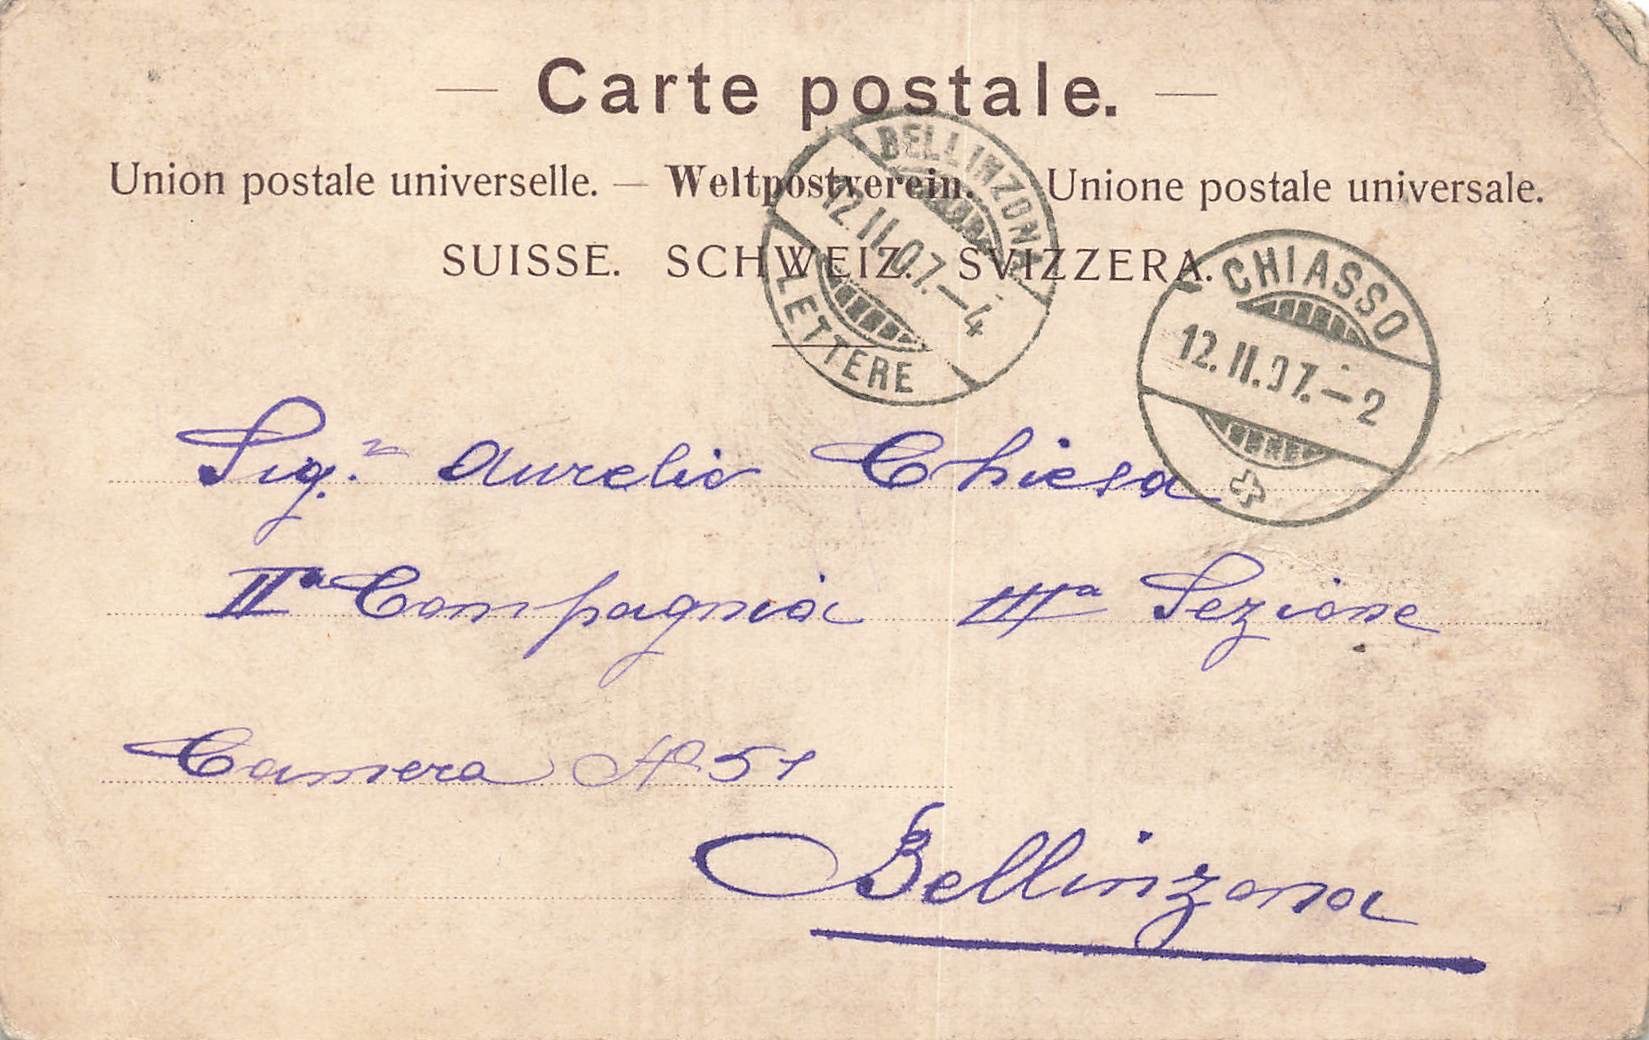 — Carte postale. —
Union postale universelle. — Weltpostverein. — Unione postale universale.
SUISSE. SCHWEIZ. SVIZZERA.
BELLINZONA
12.II.07.–4
LETTERE
CHIASSO
12.II.07.–2
Sig.r Aurelio Chiesa
IIa Compagnia IIIa Sezione
Camera No 51
Bellinzona